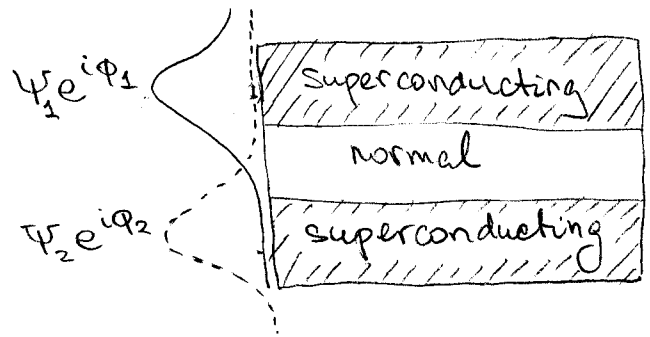 Ψ₁e^{iφ₁}
superconducting
normal
Ψ₂e^{iφ₂}
superconducting